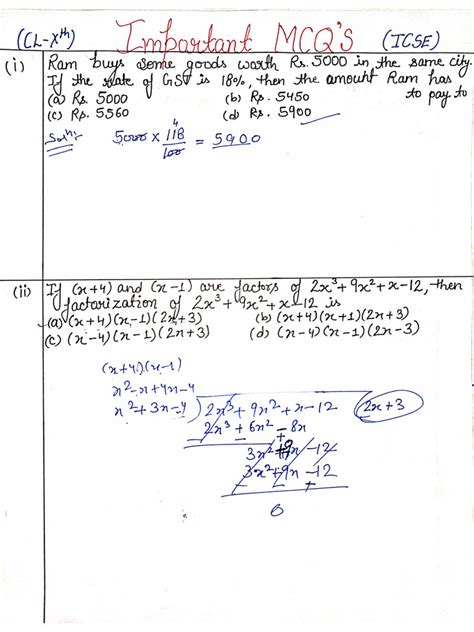 (CL-Xth) Important MCQ'S (ICSE)
(i) Ram buys some goods worth Rs. 5000 in the same city.
If the rate of GST is 18%, then the amount Ram has
to pay to
(a) Rs. 5000 (b) Rs. 5450
(c) Rs. 5560 (d) Rs. 5900
Soln: 5000 × 118/100 = 5900
(ii) If (x+4) and (x-1) are factors of 2x³+9x²+x-12, then
factorization of 2x³+9x²+x-12 is
(a) (x+4)(x-1)(2x+3) (b) (x+4)(x+1)(2x+3)
(c) (x-4)(x-1)(2x+3) (d) (x-4)(x-1)(2x-3)
(x+4)(x-1)
x²-x+4x-4
x²+3x-4) 2x³+9x²+x-12 (2x+3
2x³+6x²-8x
- - +
3x²+9x-12
3x²+9x-12
- - +
0